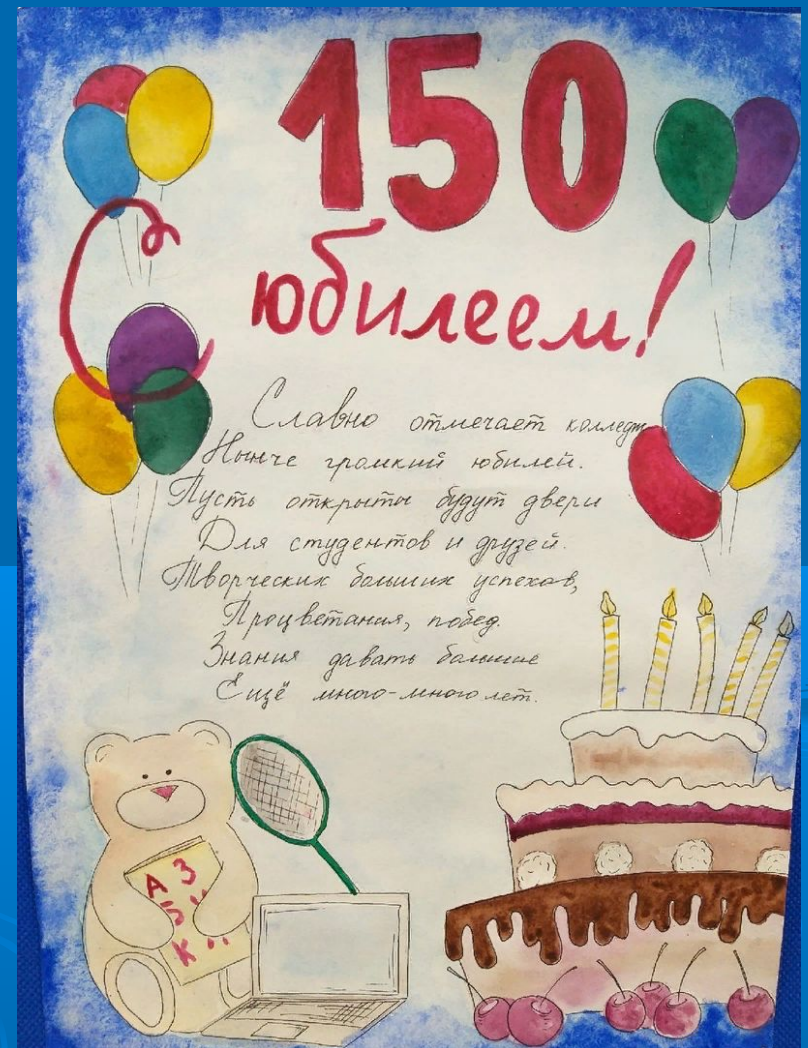 150
юбилеем!
Славно отмечает колледж
Нынче громкий юбилей.
Пусть открыты будут двери
Для студентов и друзей.
Творческих больших успехов,
Процветания, побед.
Знания давать большие
Ещё много-много лет.
А З
К